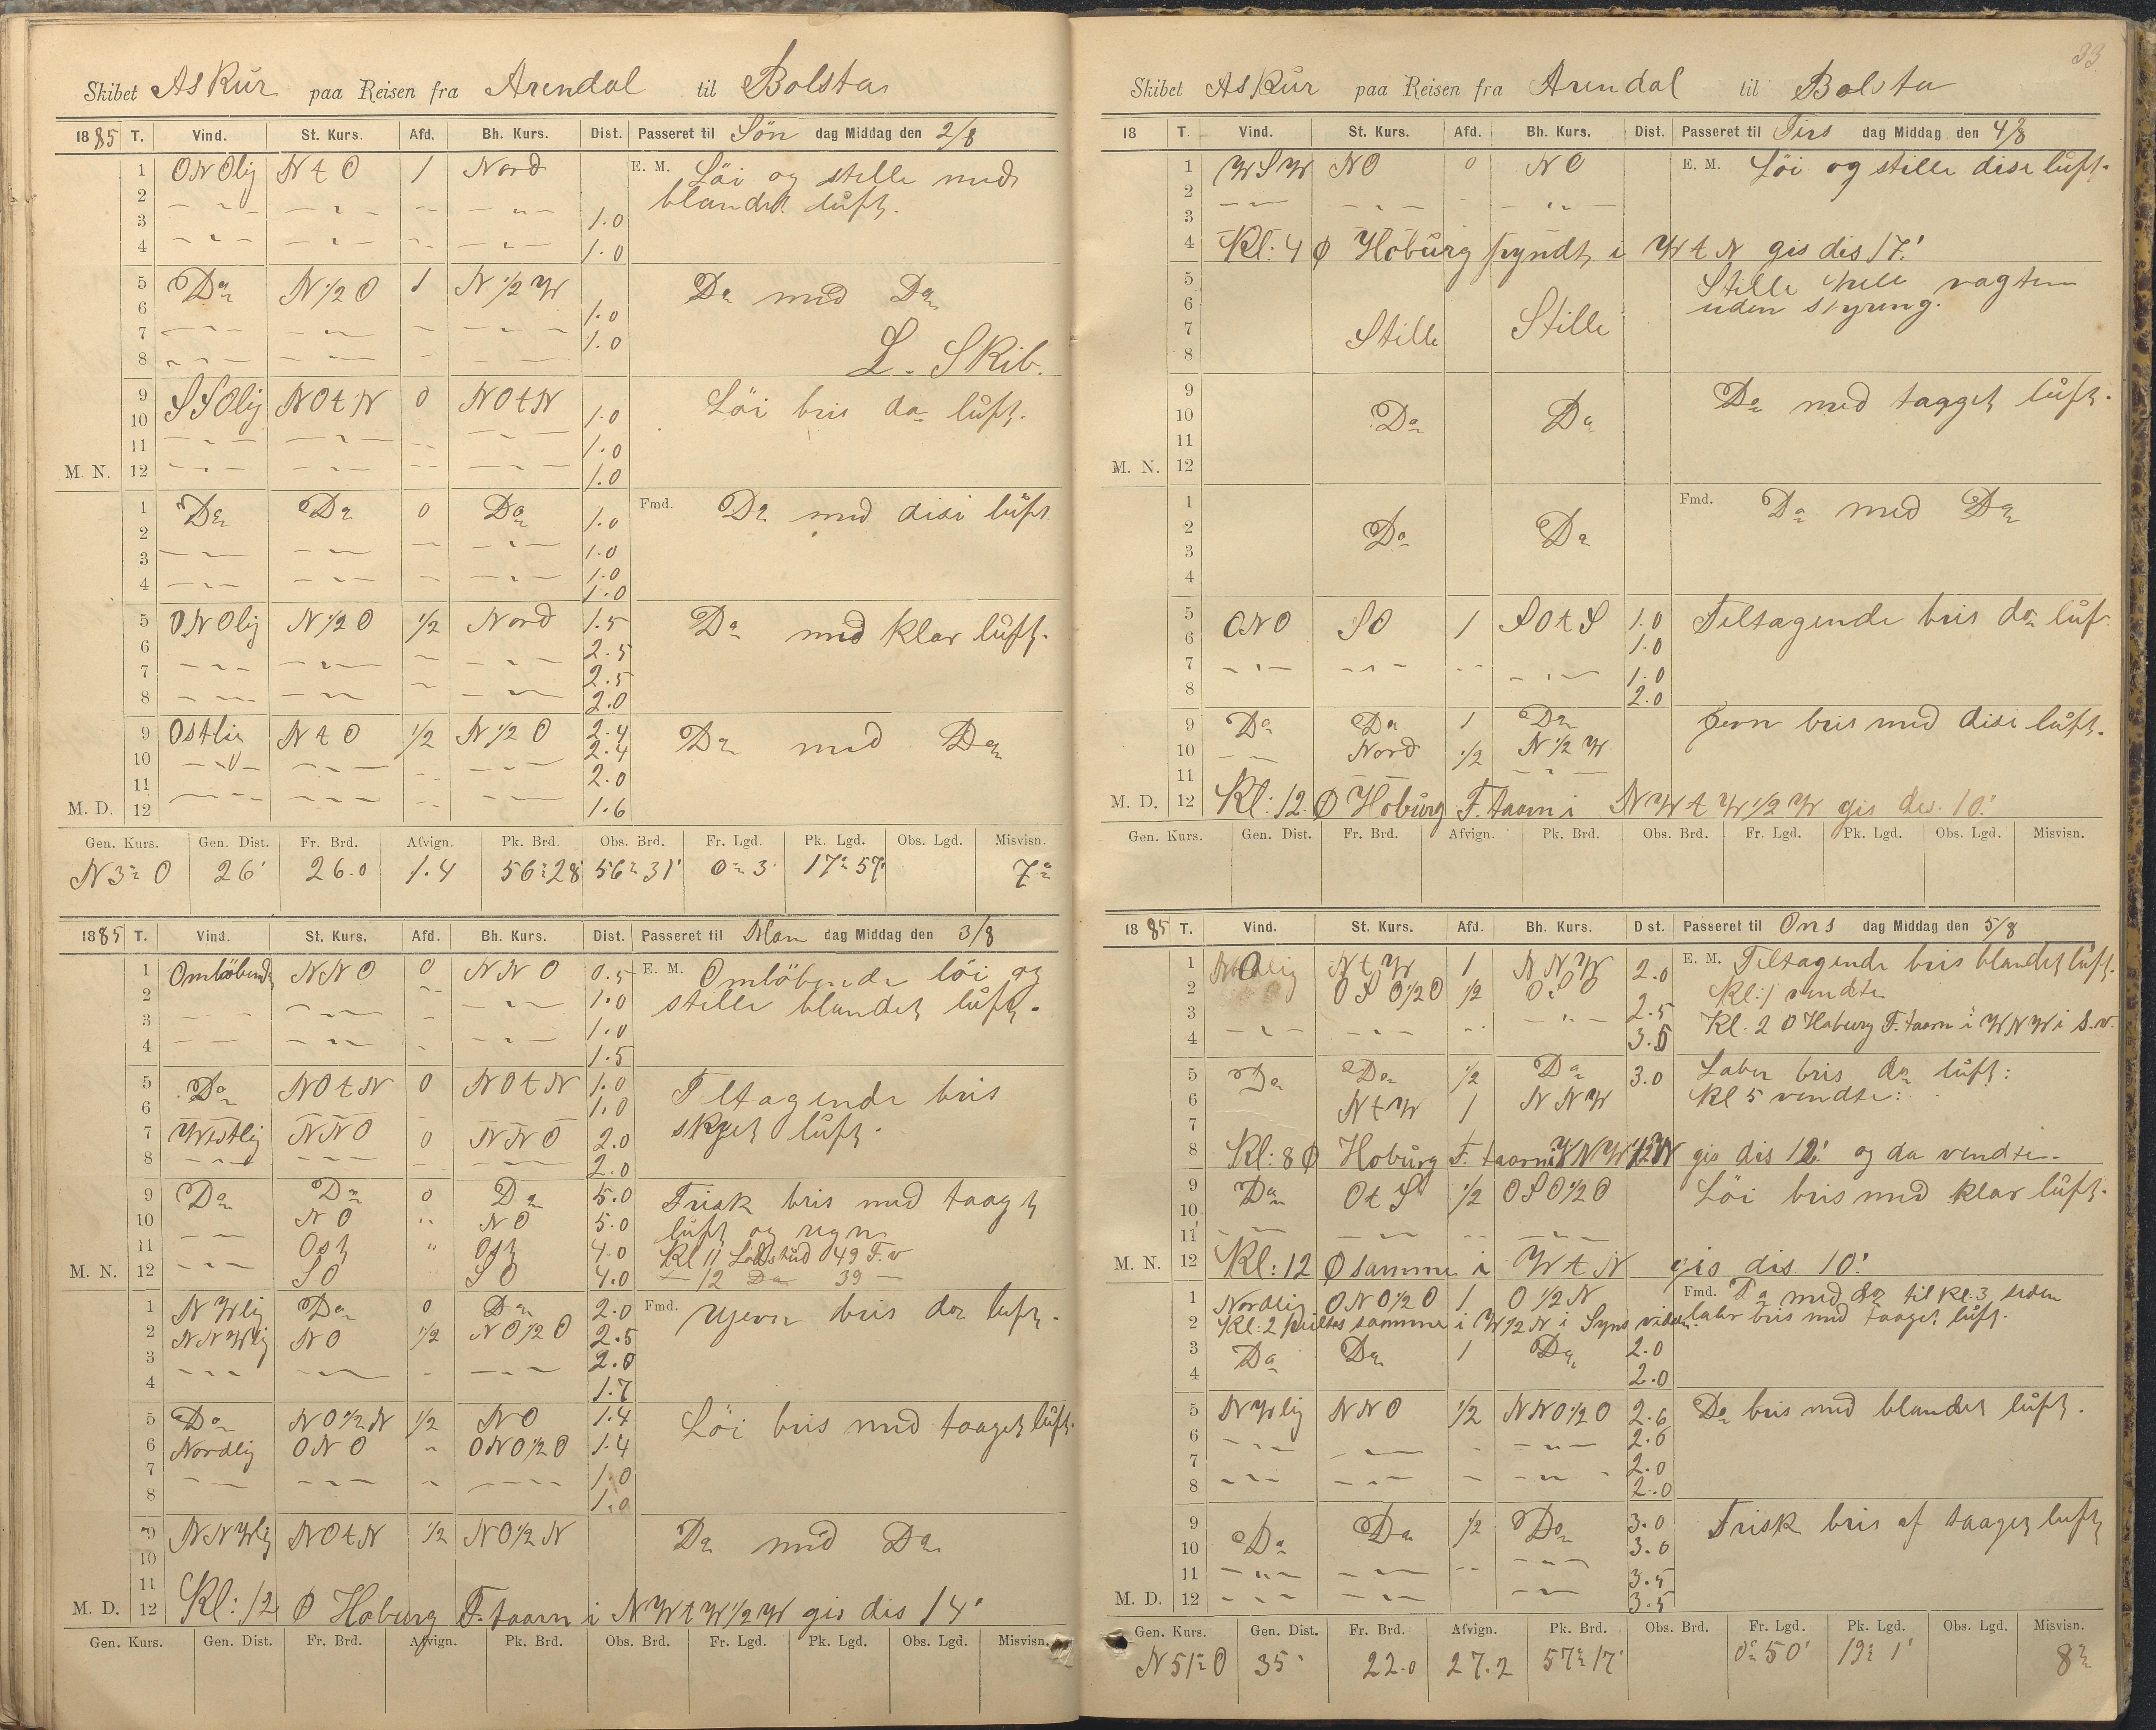 Skibet Askur paa Reisen fra Arendal til Bolsta
1885 T. Vind. St. Kurs. Afd. Bh. Kurs. Dist. Passeret til Sön dag Middag den 2/8
1 ONOlig N t O 1 Nord E. M. Löi og stille med
2 blandet luft.
3 1.0
4 1.0
5 Do N 1/2 O 1 N 1/2 W Do med Do
6 1.0
7 1.0
8 L. Skib.
9 SSOlig NOtN 0 NOtN Löi bris do luft.
10 1.0
11 1.0
M. N. 12 1.0
1 Do Do 0 Do 1.0 Fmd. Do med disi luft
2
3 1.0
4 1.0
1.0
5 ONOlig N 1/2 O 1/2 Nord 1.5 Do med klar luft.
6 2.5
7 2.5
8 2.0
9 Ostlig N t O 1/2 N 1/2 O 2.4 Do med Do
10 2.4
11 2.0
M. D. 12 1.6
Gen. Kurs. Gen. Dist. Fr. Brd. Afvign. Pk. Brd. Obs. Brd. Fr. Lgd. Pk. Lgd. Obs. Lgd. Misvisn.
N 3° O 26' 26.0 1.4 56° 28' 56° 31' 0° 3' 17° 57' 7°
1885 T. Vind. St. Kurs. Afd. Bh. Kurs. Dist. Passeret til Man dag Middag den 3/8
1 Omlöbende NNO 0 NNO 0.5 E. M. Omlöbende löi og
2 1.0 stille blandet luft.
3 1.0
4 1.5
5 Do NOtN 0 NOtN 1.0 Tiltagende bris
6 1.0 skyet luft.
7 Westlig NNO 0 NNO 2.0
8 2.0
9 Do Do 0 Do 5.0 Frisk bris med taaget
10 NO NO 5.0 luft og regn
11 Ost Ost 4.0 Kl 11 Lodskud 49 F. v
M. N. 12 SO SO 4.0 12 Do 39
1 NWlig Do 0 Do 2.0 Fmd. Ujevn bris do luft.
2 NNWlig NO 1/2 NO 1/2 O 2.5
3 2.0
4 1.7
5 Do NO 1/2 N 1/2 NO 1.4 Löi bris med taaget luft.
6 Nordlig ONO ONO 1/2 O 1.4
7 1.0
8 1.0
9 NNWlig NOtN 1/2 NO 1/2 N Do med Do
10
11
M. D. 12 Kl: 12 Ø Hoburg F. taarn i NWtW 1/2 W gis dis 14'
Gen. Kurs. Gen. Dist. Fr. Brd. Afvign. Pk. Brd. Obs. Brd. Fr. Lgd. Pk. Lgd. Obs. Lgd. Misvisn.
33.
Skibet Askur paa Reisen fra Arendal til Bolsta
18 T. Vind. St. Kurs. Afd. Bh. Kurs. Dist. Passeret til Tirs dag Middag den 4/8
1 WSW NO 0 NO E. M. Löi og stille disi luft.
2
3
4 Kl: 4 Ø Hoburg pyndt i W t N gis dis 17'
5 Stille hele vagten
6 uden styring.
7 Stille Stille
8
9 Do med tagget luft.
10 Do Do
11
M. N. 12
1 Fmd. Do med Do
2 Do Do
3
4
5 ONO SO 1 SOtS 1.0 Teltagende bris do luf
6 1.0
7 1.0
8 2.0
9 Do Do 1 Do Jevn bris med disi luft.
10 Nord 1/2 N 1/2 W
11
M. D. 12 Kl: 12 Ø Hoburg F. taarn i NWtW 1/2 W gis dis. 10'
Gen. Kurs. Gen. Dist. Fr. Brd. Afvign. Pk. Brd. Obs. Brd. Fr. Lgd. Pk. Lgd. Obs. Lgd. Misvisn.
1885 T. Vind. St. Kurs. Afd. Bh. Kurs. D st. Passeret til Ons dag Middag den 5/8
1 N t W 1 NNW 2.0 E. M. Teltagende bris blandet luft.
2 OSO 1/2 O 1/2 Kl: 1 vendte
3 2.5 Kl: 2 Ø Hoburg F. taarn i WNW i S. v.
4 3.5
5 Do Do 1/2 Do 3.0 Laber bris do luft:
6 NtW 1 NNW Kl 5 vendte:
7
8 Kl: 8 Ø Hoburg F. taarn i gis dis 12' og da vendte.
9 Do OtS 1/2 OSO 1/2 O Löi bris med klar luft.
10
11
M. N. 12 Kl: 12 Ø samme i W t N gis dis 10'
1 Nordlig ONO 1/2 O 1 O 1/2 N Fmd. Do med do til kl: 3 siden
2 Kl: 2 peiltes samme i W 1/2 N i Syns vidden laber bris med taaget luft.
3 Do Do 1 Do 2.0
4 2.0
5 NWlig NNO 1/2 NNO 1/2 O 2.6 Do bris med blandet luft.
6 2.6
7 2.0
8 2.0
9 Do Do 1/2 Do 3.0 Frisk bris af taaget luft
10 3.0
11 3.5
M. D. 12 3.5
Gen. Kurs. Gen. Dist. Fr. Brd. Afvign. Pk. Brd. Obs. Brd. Fr. Lgd. Pk. Lgd. Obs. Lgd. Misvisn.
N 51° O 35' 22.0 27.2 57° 17' 0° 50' 19° 1' 8°